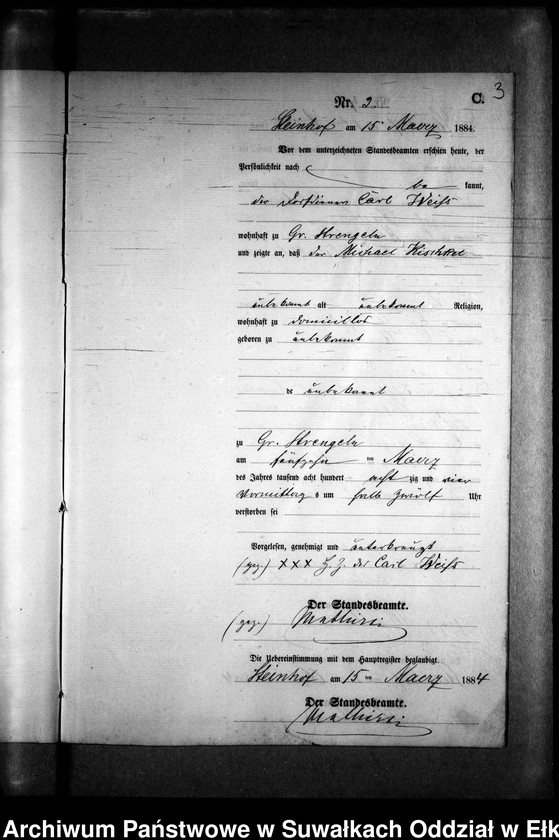 3
Nr. 2. C.
Steinhof am 15 Maerz 1884.
Vor dem unterzeichneten Standesbeamten erschien heute, der
Persönlichkeit nach
be kannt,
der Dorfdiener Carl Weiß
wohnhaft zu Gr. Strengeln
und zeigte an, daß der Michael Kischkel
unbekannt alt unbekannt Religion,
wohnhaft zu domicillos
geboren zu unbekannt
de unbekannt
zu Gr. Strengeln
am fünfzehn ten Maerz
des Jahres tausend acht hundert acht zig und vier
Vormittag s um halb zwölf Uhr
verstorben sei
Vorgelesen, genehmigt und unterkreuzt
(gez.) XXX H. Z. des Carl Weiß
Der Standesbeamte.
(gez.)
Die Uebereinstimmung mit dem Hauptregister beglaubigt
Steinhof am 15 ten Maerz 1884
Der Standesbeamte.
Archiwum Państwowe w Suwałkach Oddział w Ełk